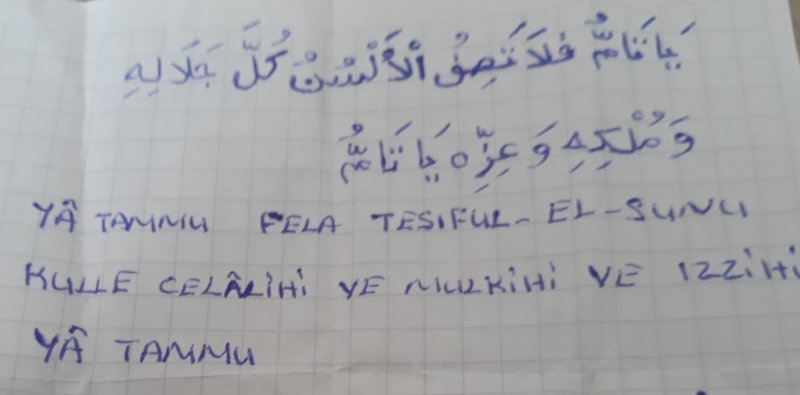 يَا تَامُّ فَلَا تَصِفُ الْأَلْسُنُ كُلَّ جَلَالِهِ
وَ مُلْكِهِ وَ عِزِّه يَا تَامُّ
YÂ TAMMU FELA TESIFUL-EL-SUNU
KULLE CELÂLİHİ VE MULKİHİ VE IZZİHİ
YÂ TAMMU